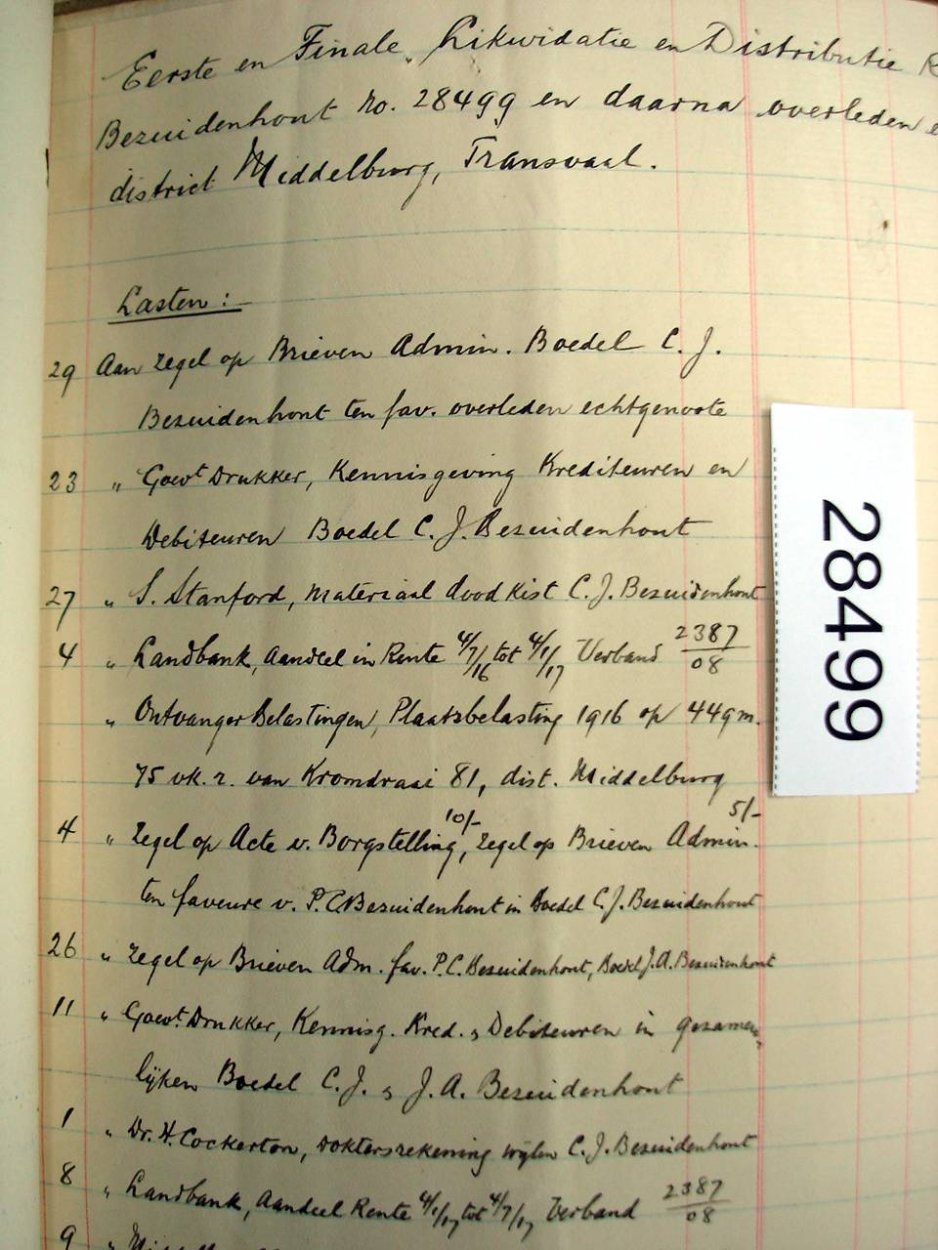 Eerste en Finale Likwidatie en Distributie
Bezuidenhout No. 28499 en daarna overleden
district Middelburg, Transvaal.
Lasten :-
29 Aan zegel op Brieven Admin. Boedel C. J.
Bezuidenhout ten fav. overleden echtgenoote
23 " Gowt Drukker, Kennisgeving Krediteuren en
Debiteuren Boedel C. J. Bezuidenhout
27 " S. Stanford, Materiaal dood kist C. J. Bezuidenhout
4 " Landbank, Aandeel in Rente 4/7/16 tot 4/1/17 Verband 2387/08
" Ontvanger Belastingen, Plaatsbelasting 1916 op 449 m.
75 vk. r. van Kromdraai 81, dist. Middelburg
4 " Zegel op Acte v. Borgstelling 10/-, Zegel op Brieven Admin. 5/-
ten faveure v. P. C. Bezuidenhout in Boedel C. J. Bezuidenhout
26 " Zegel op Brieven Adm. fav. P. C. Bezuidenhout, Boedel J. A. Bezuidenhout
11 " Gowt. Drukker, Kennisg. Kred. & Debiteuren in gezamen-
lijken Boedel C. J. & J. A. Bezuidenhout
1 " Dr. H. Cockerton, doktersrekening wijlen C. J. Bezuidenhout
8 " Landbank, Aandeel Rente 4/1/17 tot 4/7/17 Verband 2387/08
9 "
28499